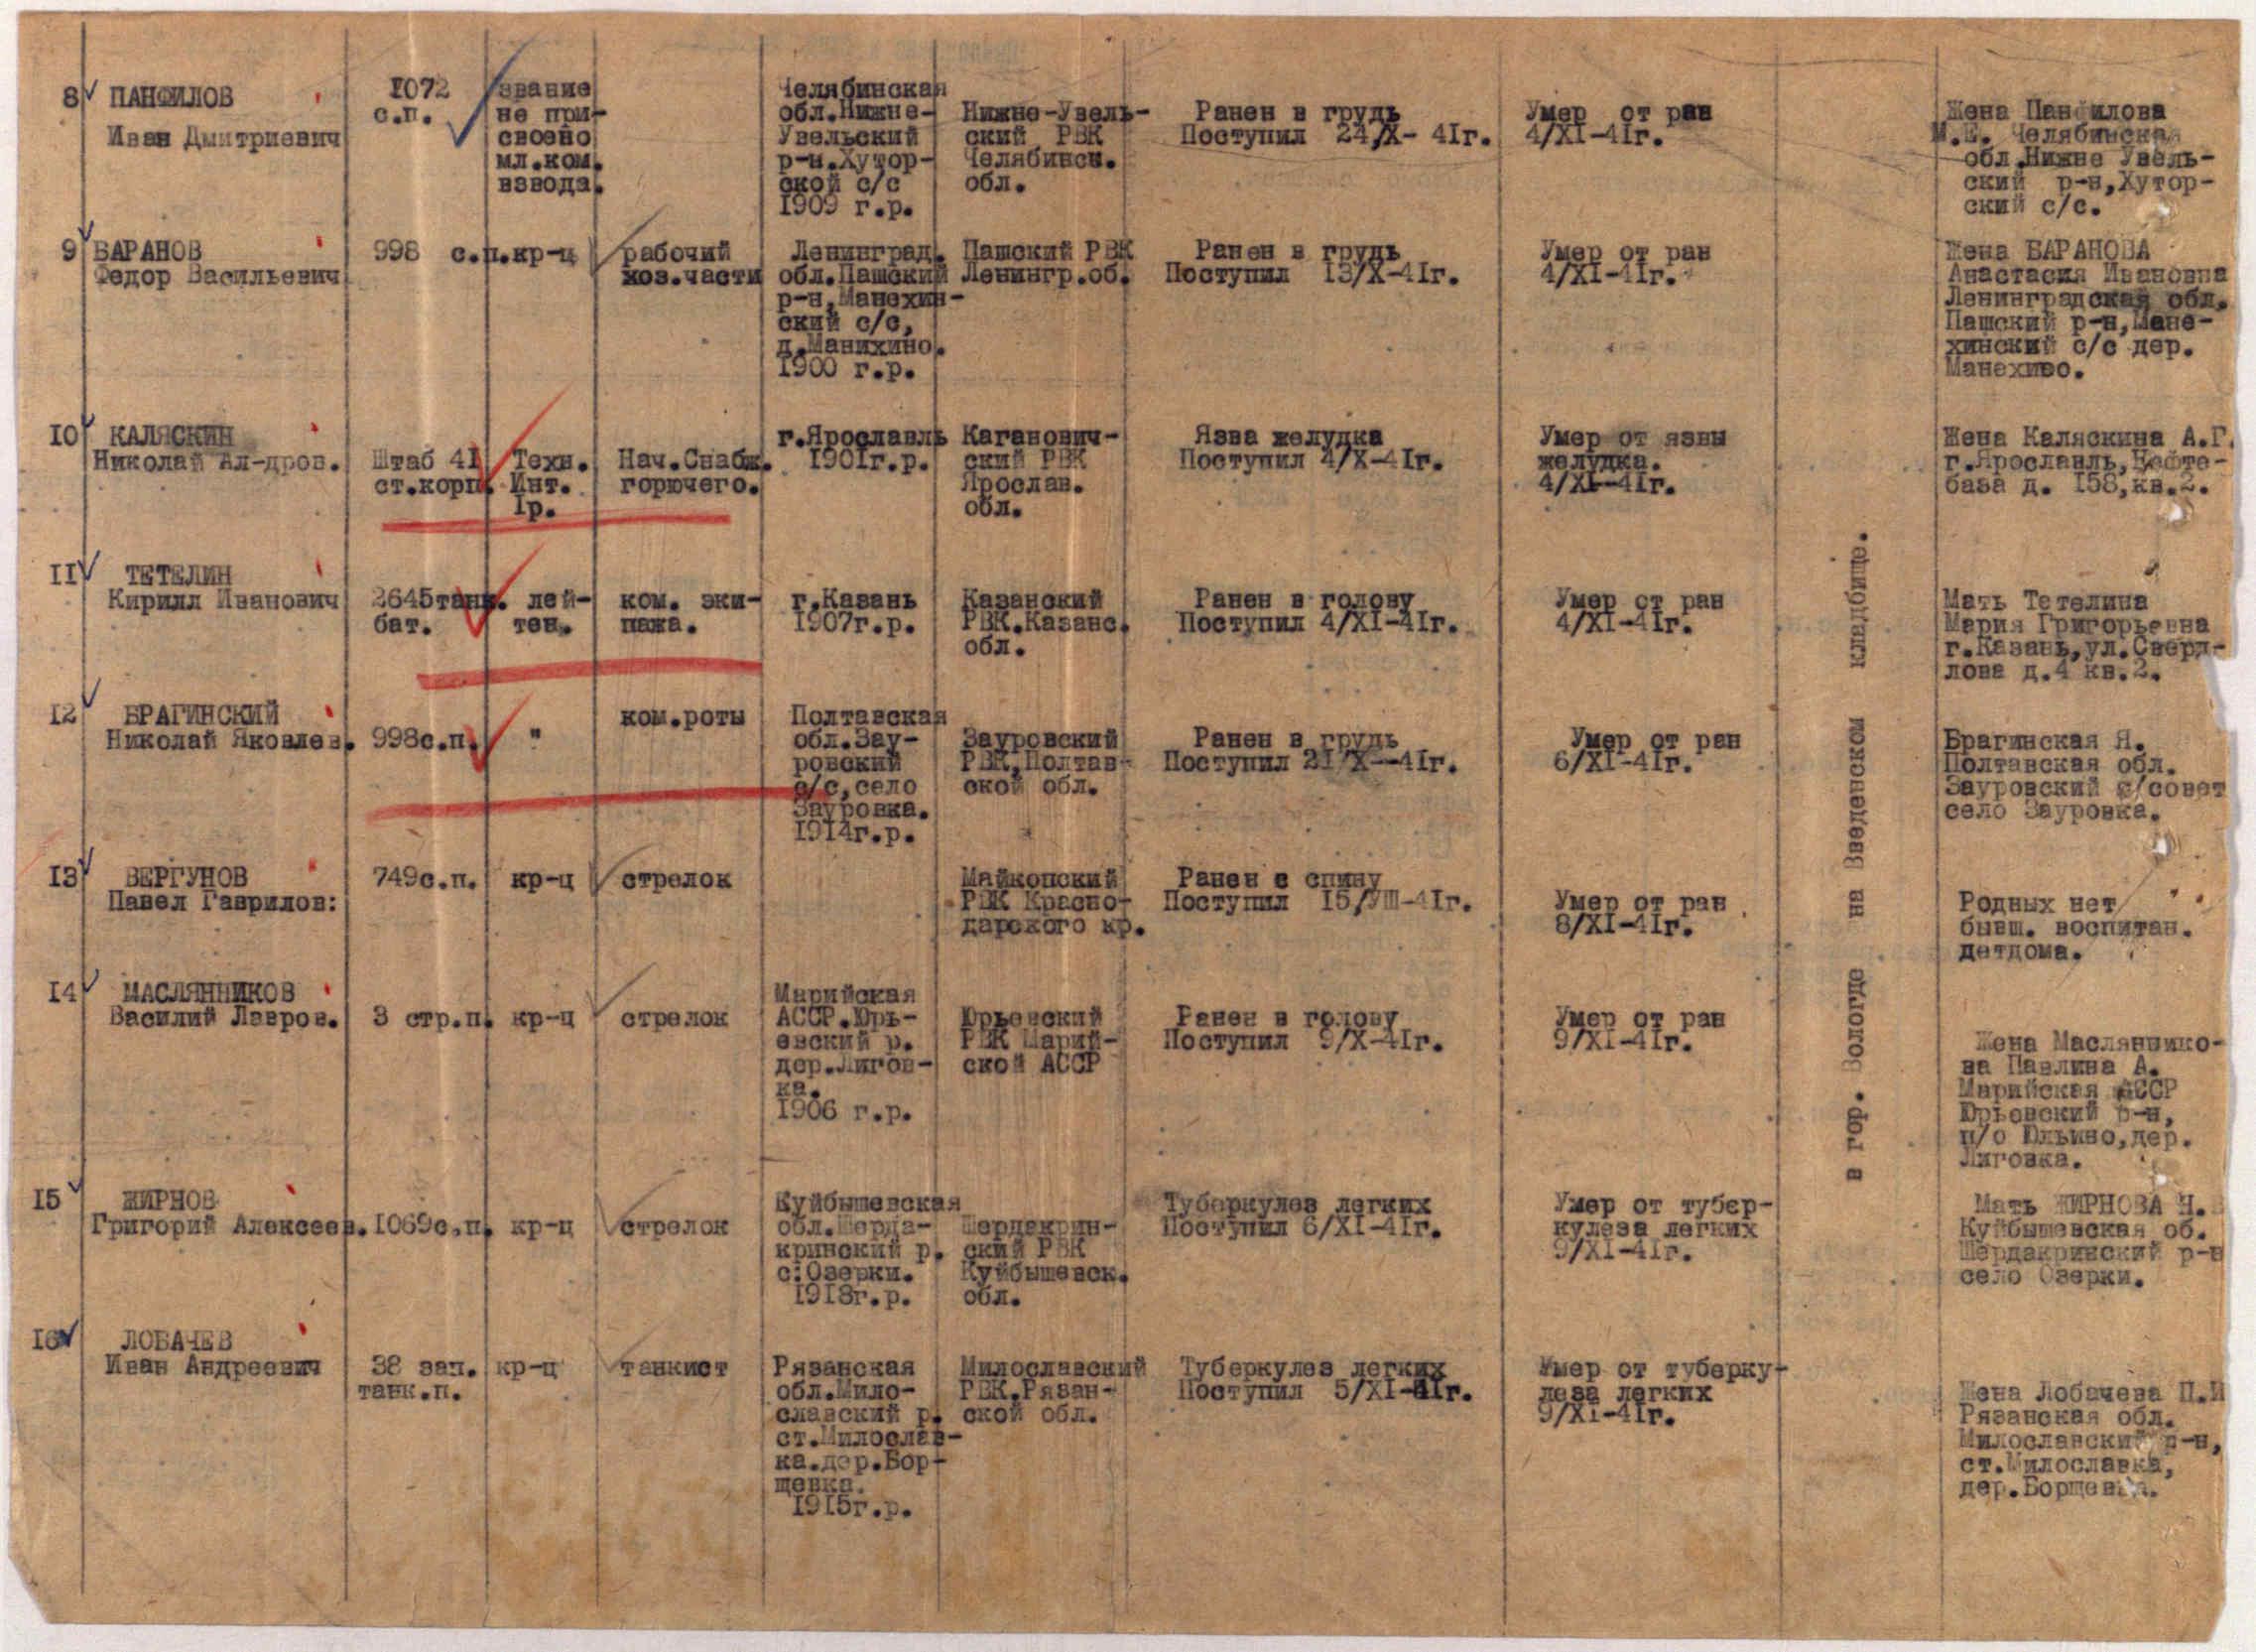 8 ПАНФИЛОВ
Иван Дмитриевич
1072
с.п.
звание
не при-
своено
мл.ком.
взвода.
Челябинская
обл.Нижне-
Увельский
р-н.Хутор-
ской с/с
1909 г.р.
Нижне-Увель-
ский РВК
Челябинск.
обл.
Ранен в грудь
Поступил 24/X- 41г.
Умер от ран
4/XI-41г.
Жена Панфилова
М.Е. Челябинская
обл.Нижне Увель-
ский р-н,Хутор-
ский с/с.
9 БАРАНОВ
Федор Васильевич
998 с.п.
кр-ц
рабочий
хоз.части
Ленинград.
обл.Пашский
р-н,Манехин-
ский с/с,
д.Манихино.
1900 г.р.
Пашский РВК
Ленингр.об.
Ранен в грудь
Поступил 13/X-41г.
Умер от ран
4/XI-41г.
Жена БАРАНОВА
Анастасия Ивановна
Ленинградская обл.
Пашский р-н,Мане-
хинский с/с дер.
Манехино.
10 КАЛЯСКИН
Николай Ал-дров.
Штаб 41
ст.корп.
Техн.
Инт.
1р.
Нач.Снабж.
горючего.
г.Ярославль
1901г.р.
Каганович-
ский РВК
Ярослав.
обл.
Язва желудка
Поступил 4/X-41г.
Умер от язвы
желудка.
4/XI-41г.
Жена Каляскина А.Г.
г.Ярославль,Нефте-
база д. 158,кв.2.
11 ТЕТЕЛИН
Кирилл Иванович
2645танк.
бат.
лей-
тен.
ком. эки-
пажа.
г.Казань
1907г.р.
Казанский
РВК.Казанс.
обл.
Ранен в голову
Поступил 4/XI-41г.
Умер от ран
4/XI-41г.
Мать Тетелина
Мария Григорьевна
г.Казань,ул.Сверд-
лова д.4 кв.2.
12 БРАГИНСКИЙ
Николай Яковлев.
998с.п.
"
ком.роты
Полтавская
обл.Зау-
ровский
с/с,село
Зауровка.
1914г.р.
Зауровский
РВК,Полтав-
ской обл.
Ранен в грудь
Поступил 21/X--41г.
Умер от ран
6/XI-41г.
Брагинская Я.
Полтавская обл.
Зауровский с/совет
село Зауровка.
13 ВЕРГУНОВ
Павел Гаврилов:
749с.п.
кр-ц
стрелок
Майкопский
РВК Красно-
дарского кр.
Ранен в спину
Поступил 15/VIII-41г.
Умер от ран
8/XI-41г.
Родных нет
бывш. воспитан.
детдома.
14 МАСЛЯННИКОВ
Василий Лавров.
3 стр.п.
кр-ц
стрелок
Марийская
АССР.Юрь-
евский р.
дер.Лигов-
ка.
1906 г.р.
Юрьевский
РВК Марий-
ской АССР
Ранен в голову
Поступил 9/X-41г.
Умер от ран
9/XI-41г.
Жена Масляннико-
ва Павлина А.
Марийская АССР
Юрьевский р-н,
п/о Юльино,дер.
Лиговка.
15 ЖИРНОВ
Григорий Алексеев.
1069с.п.
кр-ц
стрелок
Куйбышевская
обл.Шерда-
кринский р.
с:Озерки.
1918г.р.
Шердакрин-
ский РВК
Куйбышевск.
обл.
Туберкулез легких
Поступил 6/XI-41г.
Умер от тубер-
кулеза легких
9/XI-41г.
Мать ЖИРНОВА Н.
Куйбышевская об.
Шердакринский р-н
село Озерки.
16 ЛОБАЧЕВ
Иван Андреевич
38 зап.
танк.п.
кр-ц
танкист
Рязанская
обл.Мило-
славский р.
ст.Милослав-
ка.дер.Бор-
щевка.
1915г.р.
Милославский
РВК.Рязан-
ской обл.
Туберкулез легких
Поступил 5/XI-41г.
Умер от туберку-
леза легких
9/XI-41г.
Жена Лобачева П.И
Рязанская обл.
Милославский р-н,
ст.Милославка,
дер.Борщевка.
в гор. Вологде на Введенском кладбище.